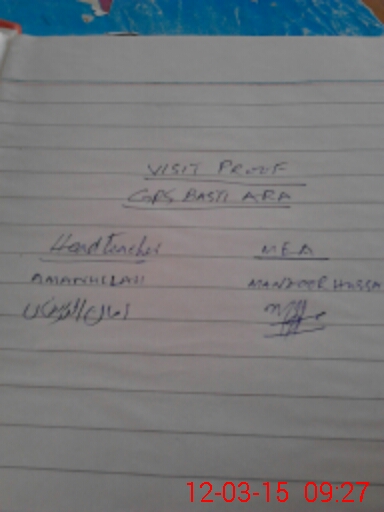 VISIT PROOF
GPS BASTI ARA
Head Teacher MEA
AMANULLAH MANZOOR HUSSA
12-03-15 09:27